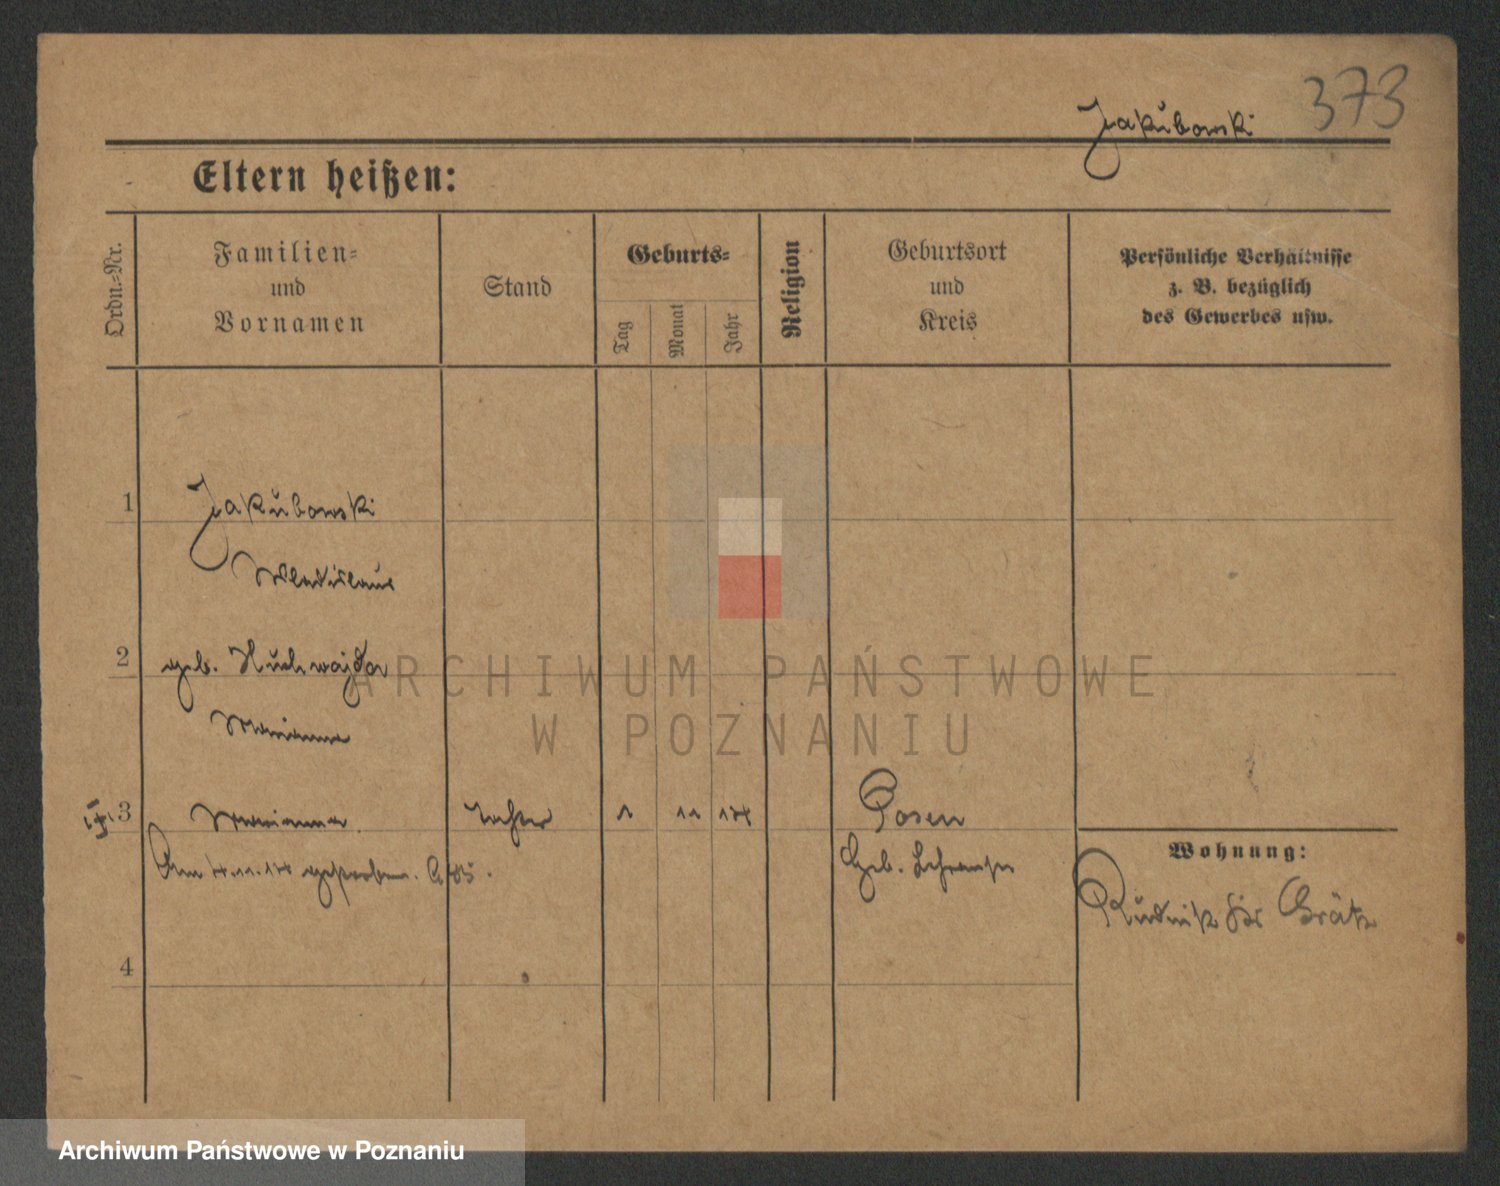 373
Jakubowski
Eltern heißen:
Ordn.-Nr.
Familien-
und
Vornamen
Stand
Geburts-
Tag
Monat
Jahr
Religion
Geburtsort
und
Kreis
Persönliche Verhältnisse
z. B. bezüglich
des Gewerbes usw.
1 Jakubowski
Wladislaus
2 geb.
Marianna
3 Marianna Tochter 1 11 14 Posen
Am 4.11.14 gestorben.
Geb.
Wohnung:
Rudnik Grätz
4
ARCHIWUM PAŃSTWOWE
W POZNANIU
Archiwum Państwowe w Poznaniu